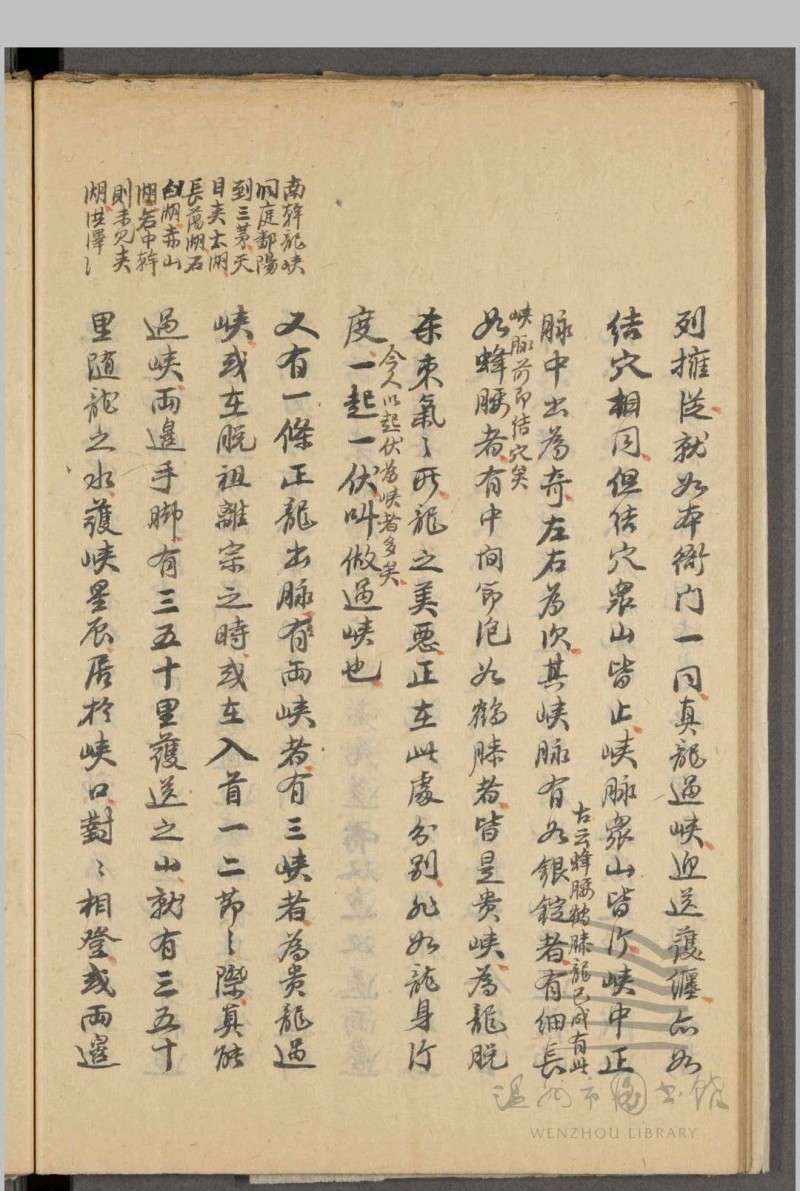 列擁從就如本衙门一同真龍過峽迎送護纏亦如
结穴相同但结穴眾山皆止峽脉眾山皆行峽中正
古云蜂腰鶴膝龍已成有此
脉中出為奇左右為次其峽脉有如銀錠者有细長
峽脉前即结穴矣
如蜂腰者有中间節泡如鶴膝者皆是贵峽為龍脱
杀束氣〻所龍之美惡正在此處分别非如龍身行
今人以起伏為峽者多矣
度一起一伏叫做過峽也
又有一條正龍出脉有两峽者有三峽者為贵龍過
峽或在脱祖離宗之時或在入首一二節〻際真能
過峽两邊手脚有三五十里護送之山就有三五十
里随龍之水護峽星辰居於峽口對〻相登或两邊
南幹龍峽
洞庭鄱陽
到三茅天
目夹太湖
長蕩湖石
臼湖赤山
湖若中幹
則未見夹
湖洪澤〻
温州市圖書館
WENZHOU LIBRARY